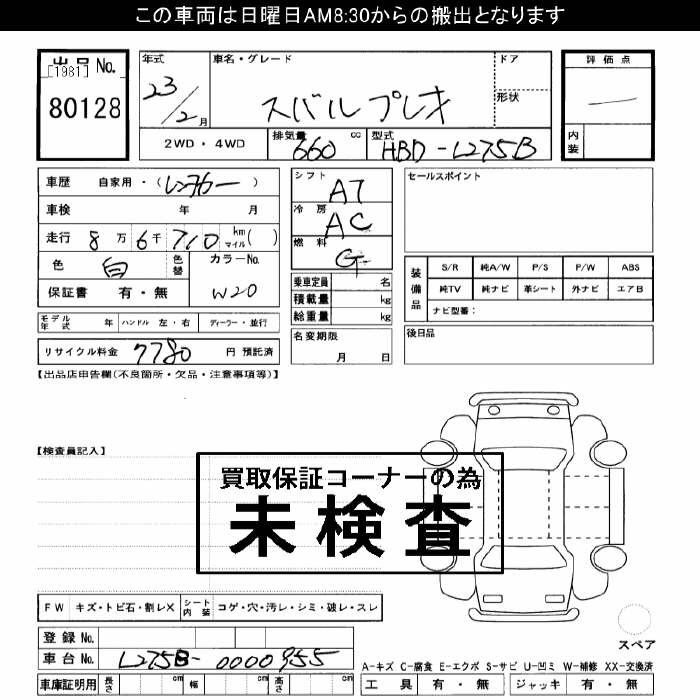 この車両は日曜日AM8:30からの搬出となります
出品 No.
[1981]
80128
年式 23/2月
車名・グレード スバル プレオ
ドア
形状
評価点
内装
2WD・4WD
排気量 660 cc
型式 HBD-L275B
車歴 自家用・(レンタカー)
車検 年 月
走行 8万6千710 km マイル( )
色 白 色替 カラーNo. W20
保証書 有・無
シフト AT
冷房 AC
燃料 G
乗車定員 名
積載量 kg
総重量 kg
セールスポイント
装備品
S/R 純A/W P/S P/W ABS
純TV 純ナビ 革シート 外ナビ エアB
ナビ型番:
モデル年式 年 ハンドル 左・右 ディーラー・並行
名変期限 月 日
後日品
リサイクル料金 7780 円 預託済
【出品店申告欄(不良箇所・欠品・注意事項等)】
【検査員記入】
買取保証コーナーの為
未検査
FW キズ・トビ石・割レX シート内装 コゲ・穴・汚レ・シミ・破レ・スレ
登録 No.
車台 No. L275B-0000955
スペア
A-キズ C-腐食 E-エクボ S-サビ U-凹ミ W-補修 XX-交換済
車庫証明用 長さ cm 幅 cm 高さ cm
工具 有・無 ジャッキ 有・無